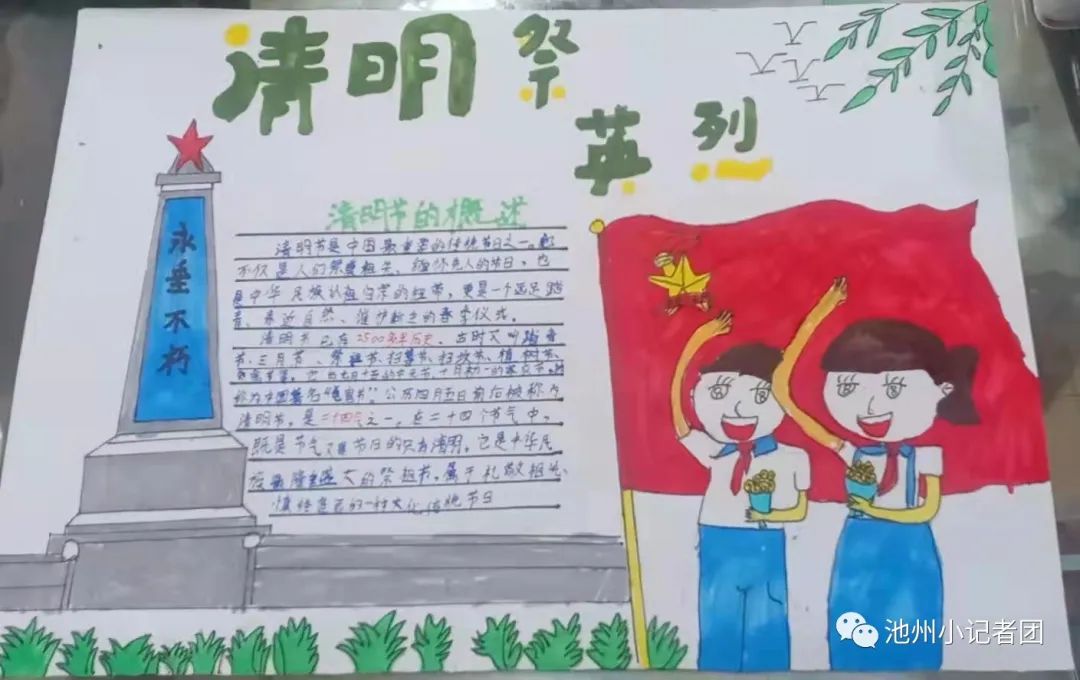 清明祭
英列
永垂不朽
清明节的概述
清明节是中国最重要的传统节日之一。它
不仅是人们祭奠祖先、缅怀先人的节日，也
是中华民族认祖归宗的纽带，更是一个远足踏
青、亲近自然、催护新生的春季仪式。
清明节已有2500多年历史，古时又叫踏青
节、三月节、祭祖节、扫墓节、扫坟节、植树节、
称为中国著名"鬼节"。公历四月五日前后被称为
清明节，是二十四节气之一，在二十四个节气中，
既是节气又是节日的只有清明。它是中华民
族最隆重盛大的祭祖节，属于礼敬祖先、
慎终追远的一种文化传统节日
池州小记者团